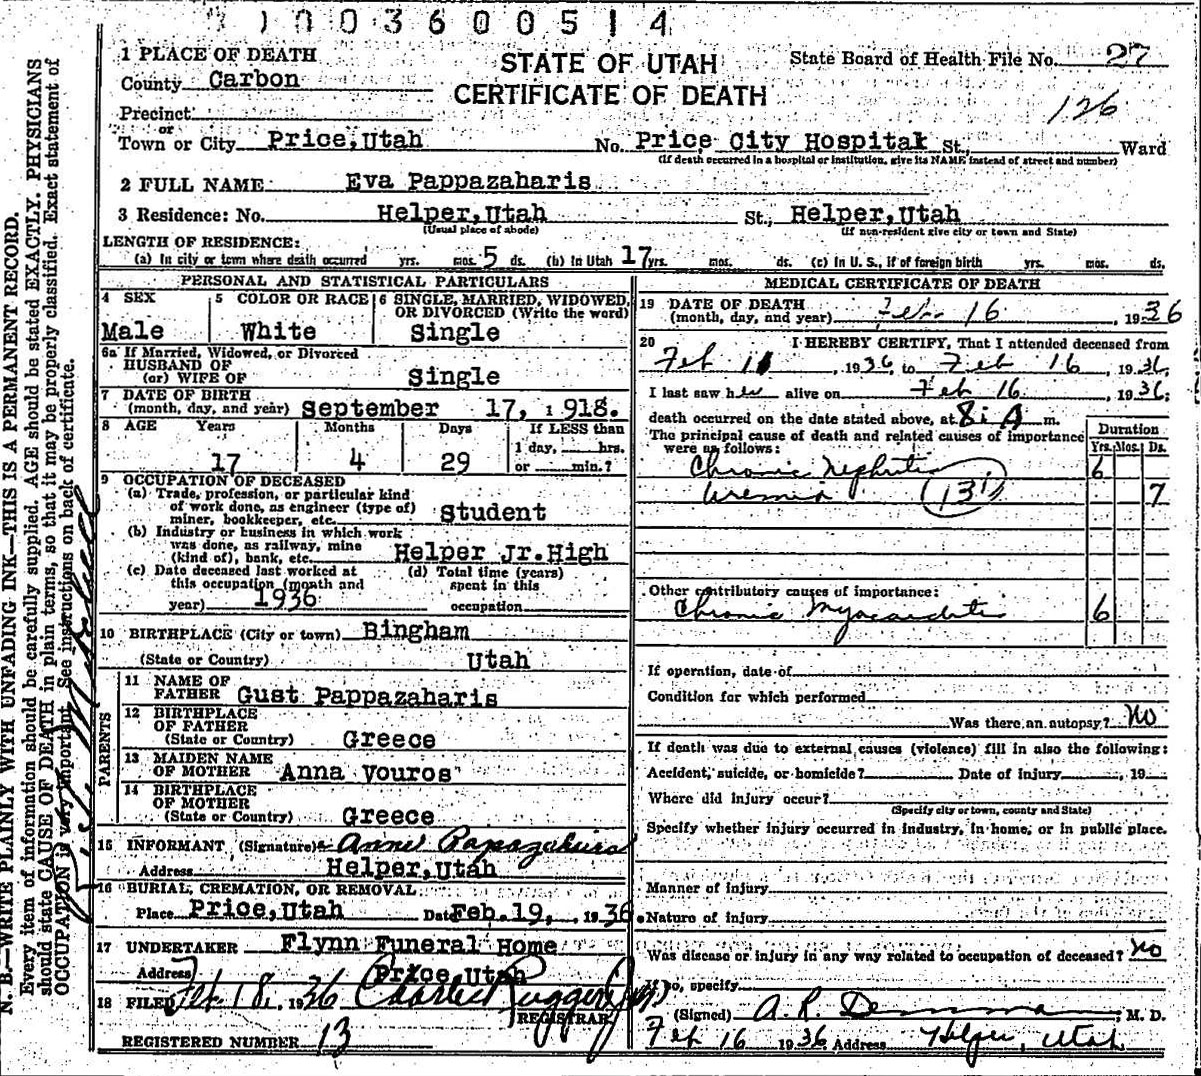 003600514
1 PLACE OF DEATH
STATE OF UTAH
State Board of Health File No. 27
County Carbon
CERTIFICATE OF DEATH
126
Precinct
or
Town or City Price, Utah No. Price City Hospital St., Ward
(If death occurred in a hospital or institution, give its NAME instead of street and number)
2 FULL NAME Eva Pappazaharis
3 Residence: No. Helper, Utah St., Helper, Utah
(Usual place of abode) (If non-resident give city or town and State)
LENGTH OF RESIDENCE:
(a) In city or town where death occurred yrs. mos. 5 ds. (b) In Utah 17 yrs. mos. ds. (c) In U. S., if of foreign birth yrs. mos. ds.
PERSONAL AND STATISTICAL PARTICULARS
4 SEX 5 COLOR OR RACE 6 SINGLE, MARRIED, WIDOWED, OR DIVORCED (Write the word)
Male White Single
6a If Married, Widowed, or Divorced
HUSBAND OF
(or) WIFE OF Single
7 DATE OF BIRTH
(month, day, and year) September 17, 1918.
8 AGE Years Months Days If LESS than
1 day, hrs.
17 4 29 or min.?
9 OCCUPATION OF DECEASED
(a) Trade, profession, or particular kind
of work done, as engineer (type of)
miner, bookkeeper, etc. Student
(b) Industry or business in which work
was done, as railway, mine
(kind of), bank, etc. Helper Jr. High
(c) Date deceased last worked at
this occupation (month and
year) 1936
(d) Total time (years)
spent in this
occupation
10 BIRTHPLACE (City or town) Bingham
(State or Country) Utah
PARENTS
11 NAME OF
FATHER Gust Pappazaharis
12 BIRTHPLACE
OF FATHER
(State or Country) Greece
13 MAIDEN NAME
OF MOTHER Anna Vouros
14 BIRTHPLACE
OF MOTHER
(State or Country) Greece
15 INFORMANT (Signature)
Address Helper, Utah
16 BURIAL, CREMATION, OR REMOVAL
Place Price, Utah Date Feb. 19, 1936.
17 UNDERTAKER Flynn Funeral Home
Address Price, Utah
18 FILED Feb 18, 1936 Charles Ruggeri
REGISTRAR
REGISTERED NUMBER 13
MEDICAL CERTIFICATE OF DEATH
19 DATE OF DEATH
(month, day, and year) Feb 16, 1936
20 I HEREBY CERTIFY, That I attended deceased from
Feb 11, 1936, to Feb 16, 1936,
I last saw her alive on Feb 16, 1936;
death occurred on the date stated above, at 8: A m.
The principal cause of death and related causes of importance
were as follows:
Duration
Yrs. Mos. Ds.
Chronic Nephritis 6
Uremia 131 7
Other contributory causes of importance:
Chronic Myocarditis 6
If operation, date of
Condition for which performed
Was there an autopsy? No
If death was due to external causes (violence) fill in also the following:
Accident, suicide, or homicide? Date of injury, 19
Where did injury occur?
(Specify city or town, county and State)
Specify whether injury occurred in industry, in home, or in public place.
Manner of injury
Nature of injury
Was disease or injury in any way related to occupation of deceased? No
If so, specify
(Signed) A. R. M. D.
Feb 16 1936 Address Helper, Utah
N. B.—WRITE PLAINLY WITH UNFADING INK—THIS IS A PERMANENT RECORD.
Every item of information should be carefully supplied. AGE should be stated EXACTLY. PHYSICIANS
should state CAUSE OF DEATH in plain terms, so that it may be properly classified. Exact statement of
OCCUPATION is very important. See instructions on back of certificate.